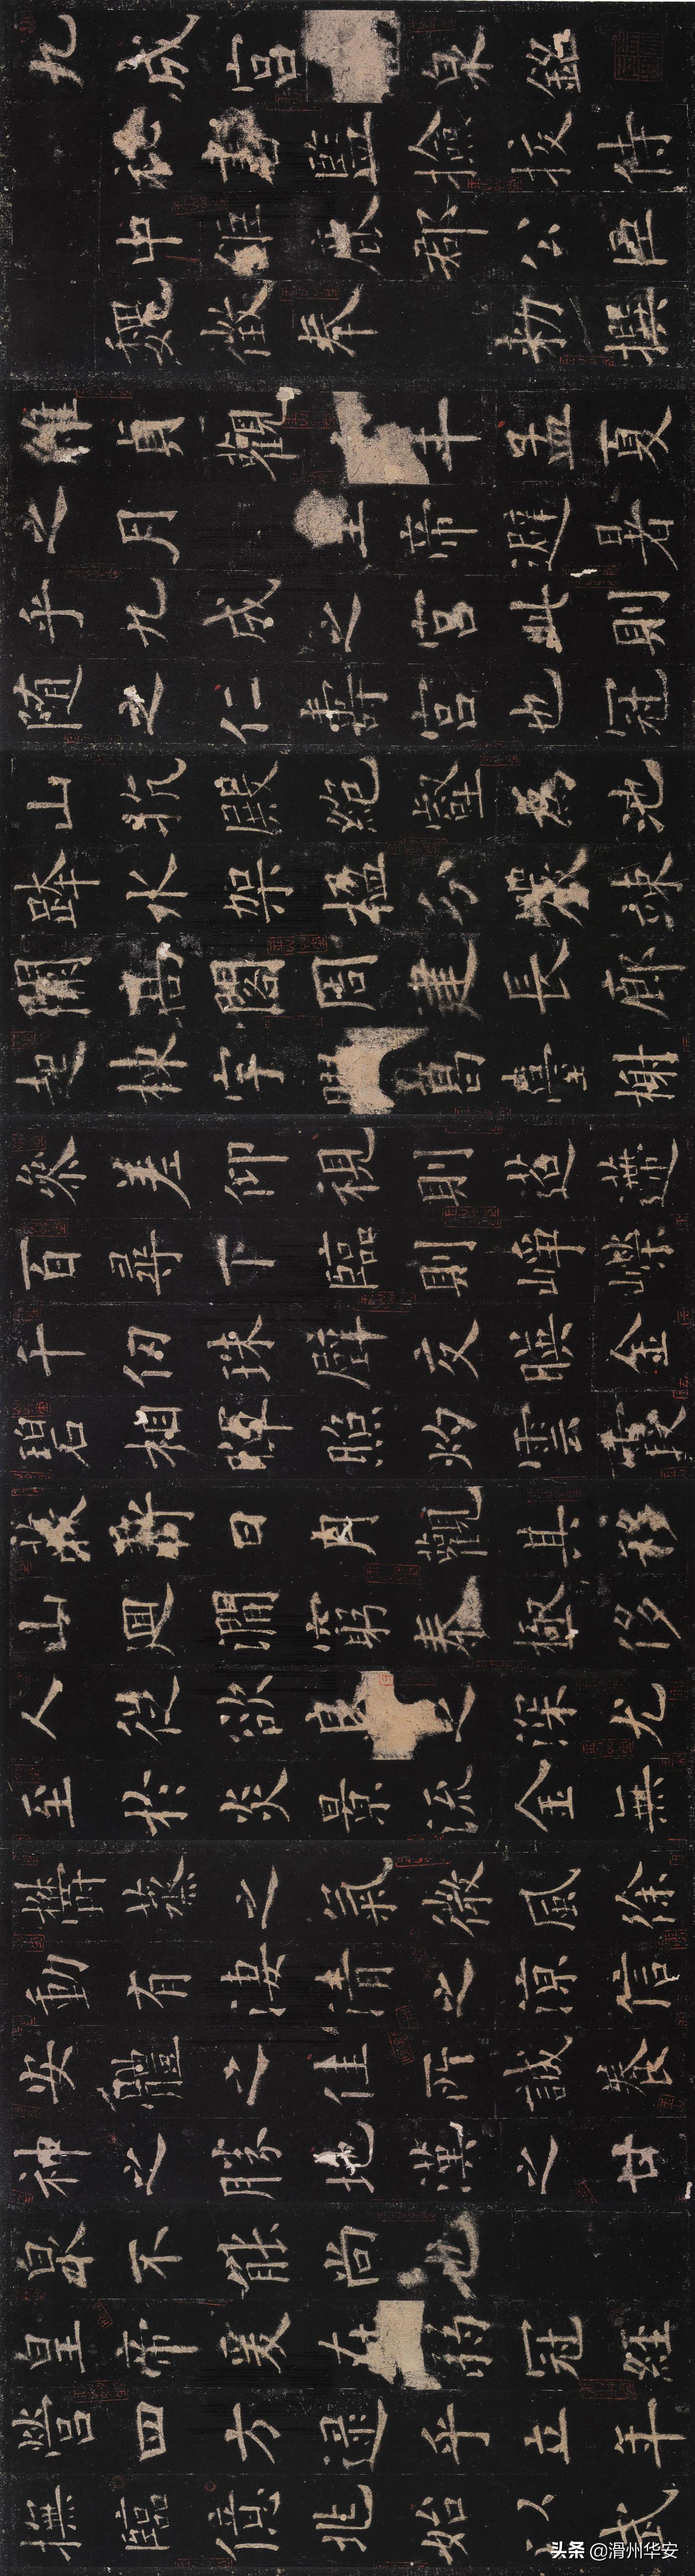 九成宫泉銘
秘書監檢校侍
中鉅鹿郡公臣
魏徵奉勅撰
維貞觀年孟夏
之月皇帝避暑
乎九成之宫此則
隨之仁壽宫也冠
山抗殿絕壑為池
跨水架楹分巖竦
闕高閣周建長廊
起棟宇膠葛臺榭
参差仰視則迢遰
百尋下臨則崢嶸
千仞珠壁交暎金
碧相暉照灼雲霞
蔽虧日月觀其移
山迴澗窮泰極侈
人從欲良足深尤
至於炎景流金無
欝蒸之氣微風徐
動有淒清之涼信
安體之佳所誠養
神之勝地漢之甘
泉不能尚也
皇帝爰在弱冠經
營四方逮乎立年
撫臨億兆始以武
头条 @滑州华安